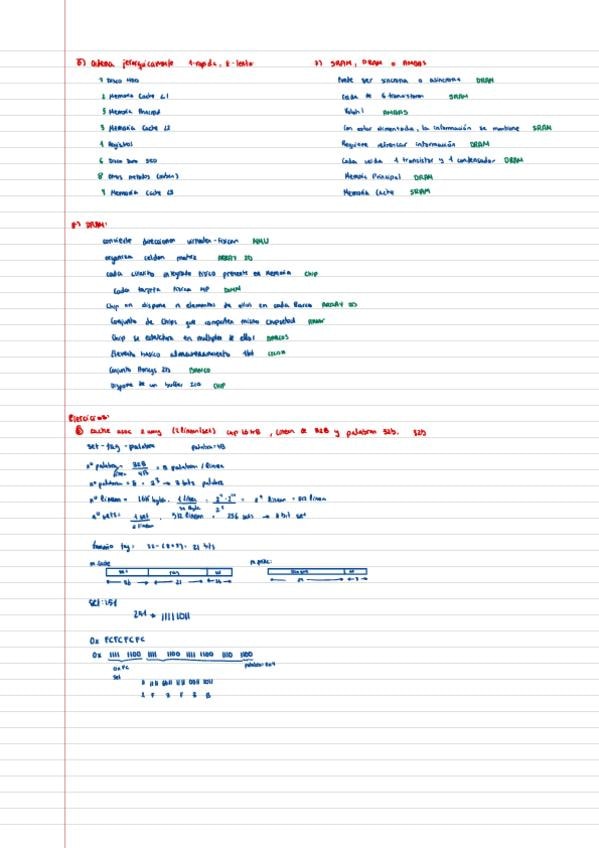 6) ordena jerárquicamente 1-rapida, 8-lento
7 Disco HDD
2 Memoria Cache L1
5 Memoria Principal
3 Memoria Cache L2
1 Registros
6 Disco Duro SSD
8 Otros metodos
4 Memoria Cache L3
7) SRAM, DRAM o AMBAS
Puede ser sincrona o asincrona DRAM
Celda de 6 transistores SRAM
Volatil AMBAS
Con estar alimentada, la información se mantiene SRAM
Requiere refrescar información DRAM
Cada celda 1 transistor y 1 condensador DRAM
Memoria Principal DRAM
Memoria Cache SRAM
8) DRAM:
convierte direcciones virtuales-fisicas MMU
organiza celdas matriz ARRAY 2D
cada circuito integrado fisico presente en memoria CHIP
Cada tarjeta fisica MP DIMM
Chip en dispone n elementos de ellos en cada Banco ARRAY 2D
Conjunto de Chips que comparten mismo chipselect RANK
Chip se estructura en multiples de ellos BANCOS
Elemento básico almacenamiento 1bit CELDA
Conjunto Arrays 2D BANCO
Dispone de un buffer CHIP
Ejercicios:
cache asoc 2 way (2 lineas/set) cap 16KB, lineas de 32B y palabras 32b. 32b
set-tag-palabra palabra=4B
nº palabras/linea = 32B/4B = 8 palabras/linea
nº palabras = 8 = 2³ → 3 bits palabra
nº lineas = 16K bytes · 1 linea/32 bytes = 2⁴·2¹⁰/2⁵ = 2⁹ lineas = 512 lineas
nº sets: 1 set/2 lineas · 512 lineas = 256 sets → 8 bit set
tamaño tag = 32-(8+3) = 21 bits
m.cache
m.ppal:
set:251
251 → 11111011
0x FCFCFCFC
0x 1111 1100 1111 1100 1111 1100 1111 1100
0xFC
set
1 F 3 F 3 B